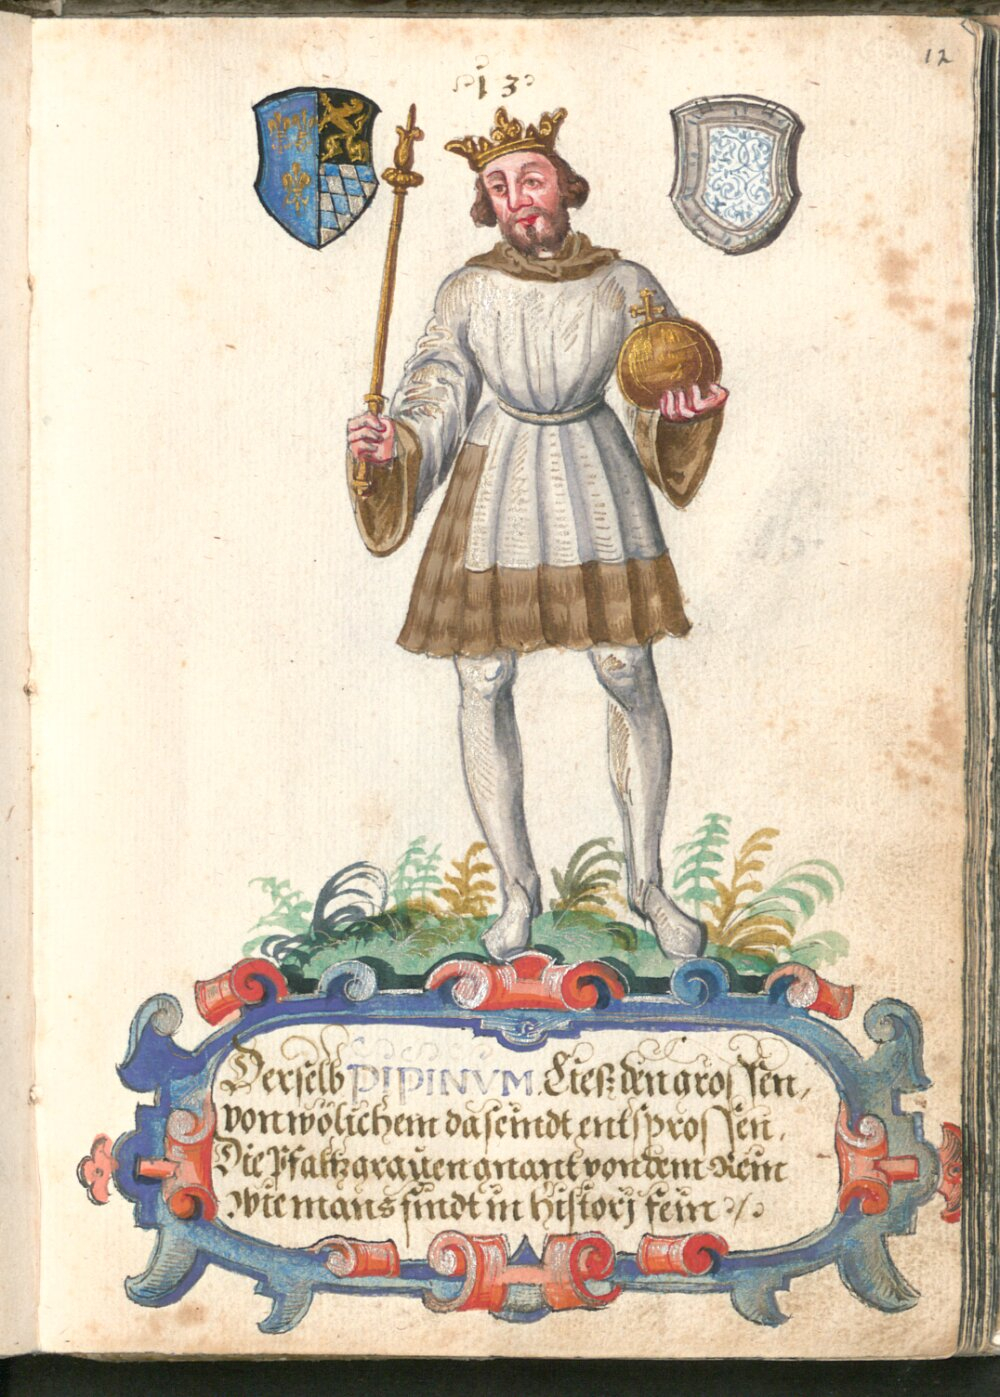 12
13
Derselb PIPINVM. Ließ den grossen,
von wölichem da seindt entsprossen.
Die Pfaltzgrauen gnant von dem Rein
Wie mans findt in historj fein